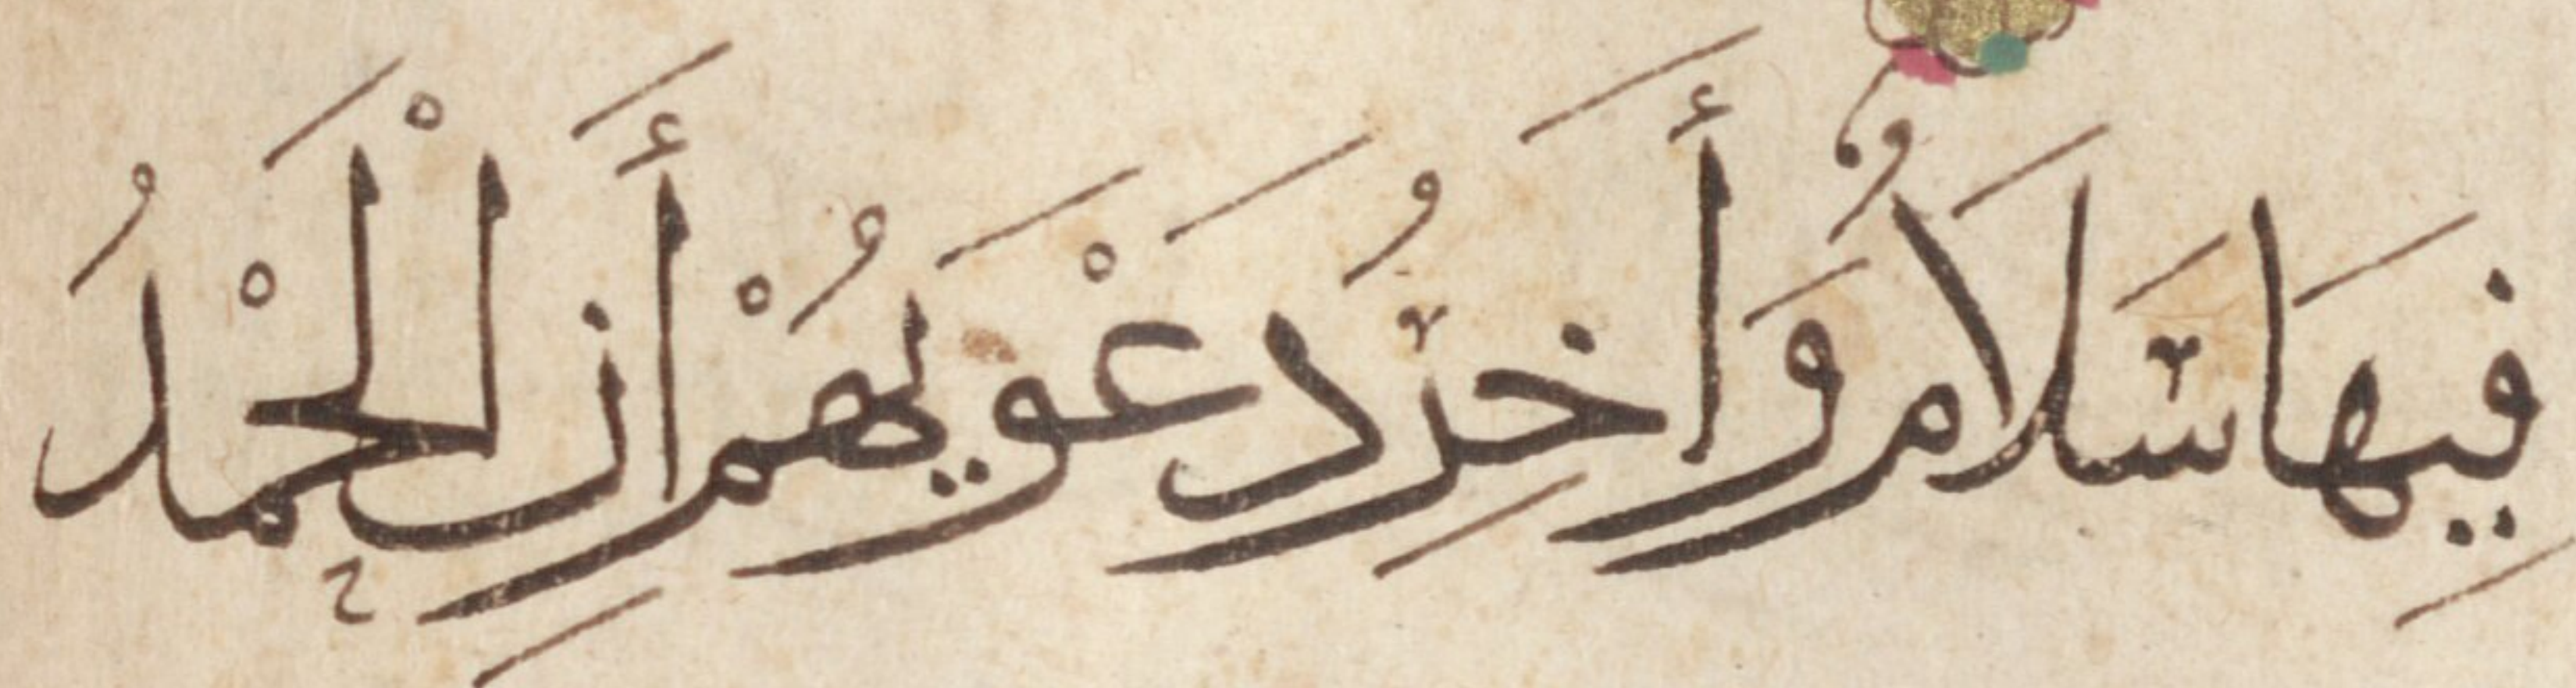 فِيهَا سَلَامٌ وَأَخِرُ دَعْوَيهُمْ أَنِ الْحَمْدُ